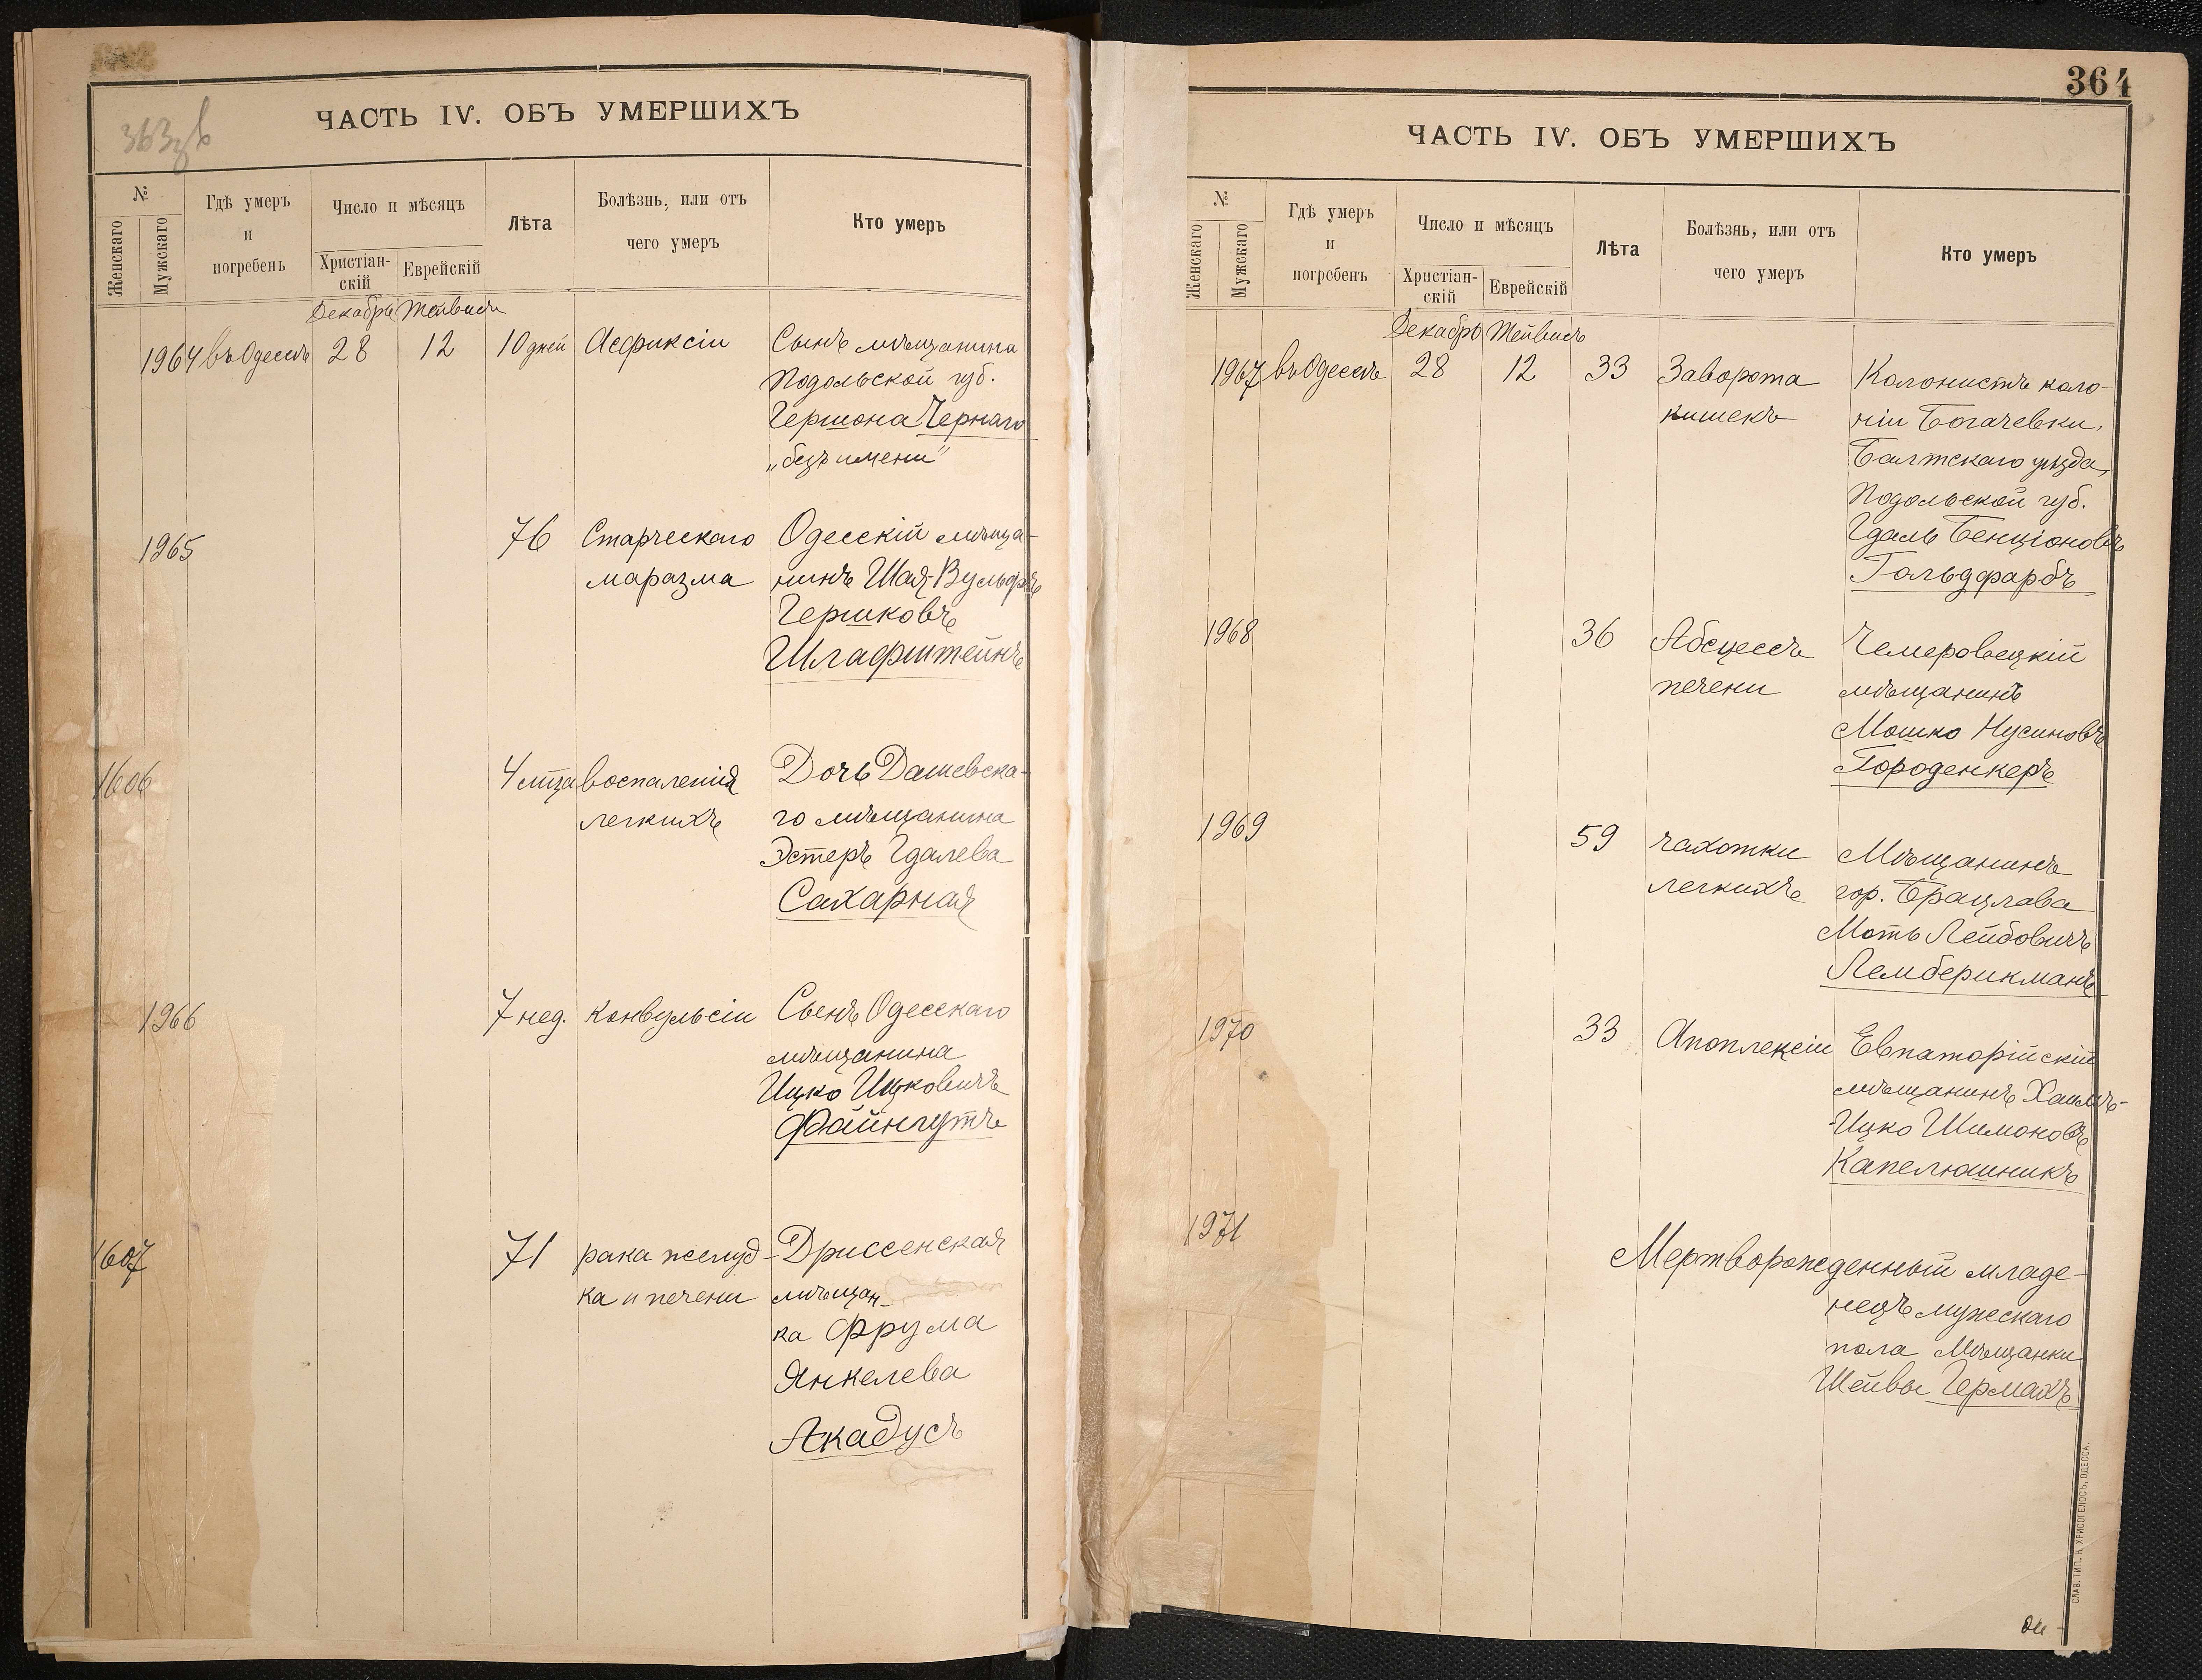 363 об
ЧАСТЬ IV. ОБЪ УМЕРШИХЪ
№
Женскаго
Мужскаго
Гдѣ умеръ
и
погребенъ
Число и мѣсяцъ
Христіан-
скій
Еврейскій
Лѣта
Болѣзнь, или отъ
чего умеръ
Кто умеръ
Декабрь Тейвисъ
1964 въ Одессѣ 28 12 10 дней Асфиксіи Сынъ мѣщанина
Подольской губ.
Гершона Чернаго
„безъ имени"
1965 76 Старческаго Одесскій мѣща-
маразма нинъ Шая-Вульфъ
Гершковъ
Шлафштейнъ
1606 4 мца воспаленія Дочь Дашевска-
легкихъ го мѣщанина
Эстеръ Гдалева
Сахарная
1966 7 нед. конвульсіи Сынъ Одесскаго
мѣщанина
Ицко Ицковичъ
Файнгутъ
1607 71 рака желуд- Дриссенская
ка и печени мѣщан-
ка Фрума
Янкелева
Акадусъ
364
ЧАСТЬ IV. ОБЪ УМЕРШИХЪ
№
Женскаго
Мужскаго
Гдѣ умеръ
и
погребенъ
Число и мѣсяцъ
Христіан-
скій
Еврейскій
Лѣта
Болѣзнь, или отъ
чего умеръ
Кто умеръ
Декабрь Тейвисъ
1967 въ Одессѣ 28 12 33 Заворота Колонистъ коло-
кишекъ ніи Богачевки,
Балтскаго уѣзда,
Подольской губ.
Гдаль Бенціоновъ
Гольдфарбъ
1968 36 Абсцессъ Чемеровецкій
печени мѣщанинъ
Мошко Нусиновъ
Городенкеръ
1969 59 чахотки Мѣщанинъ
легкихъ гор. Брацлава
Моть Лейбовичъ
Лемберикманъ
1970 33 Апоплексіи Евпаторійскій
мѣщанинъ Хаимъ-
Ицко Шимоновъ
Капелюшникъ
1971 Мертворожденный младе-
нецъ мужескаго
пола Мѣщанки
Шейвы Гермахъ
СЛАВ. ТИП. Н. ХРИСОГЕЛОСЪ, ОДЕССА.